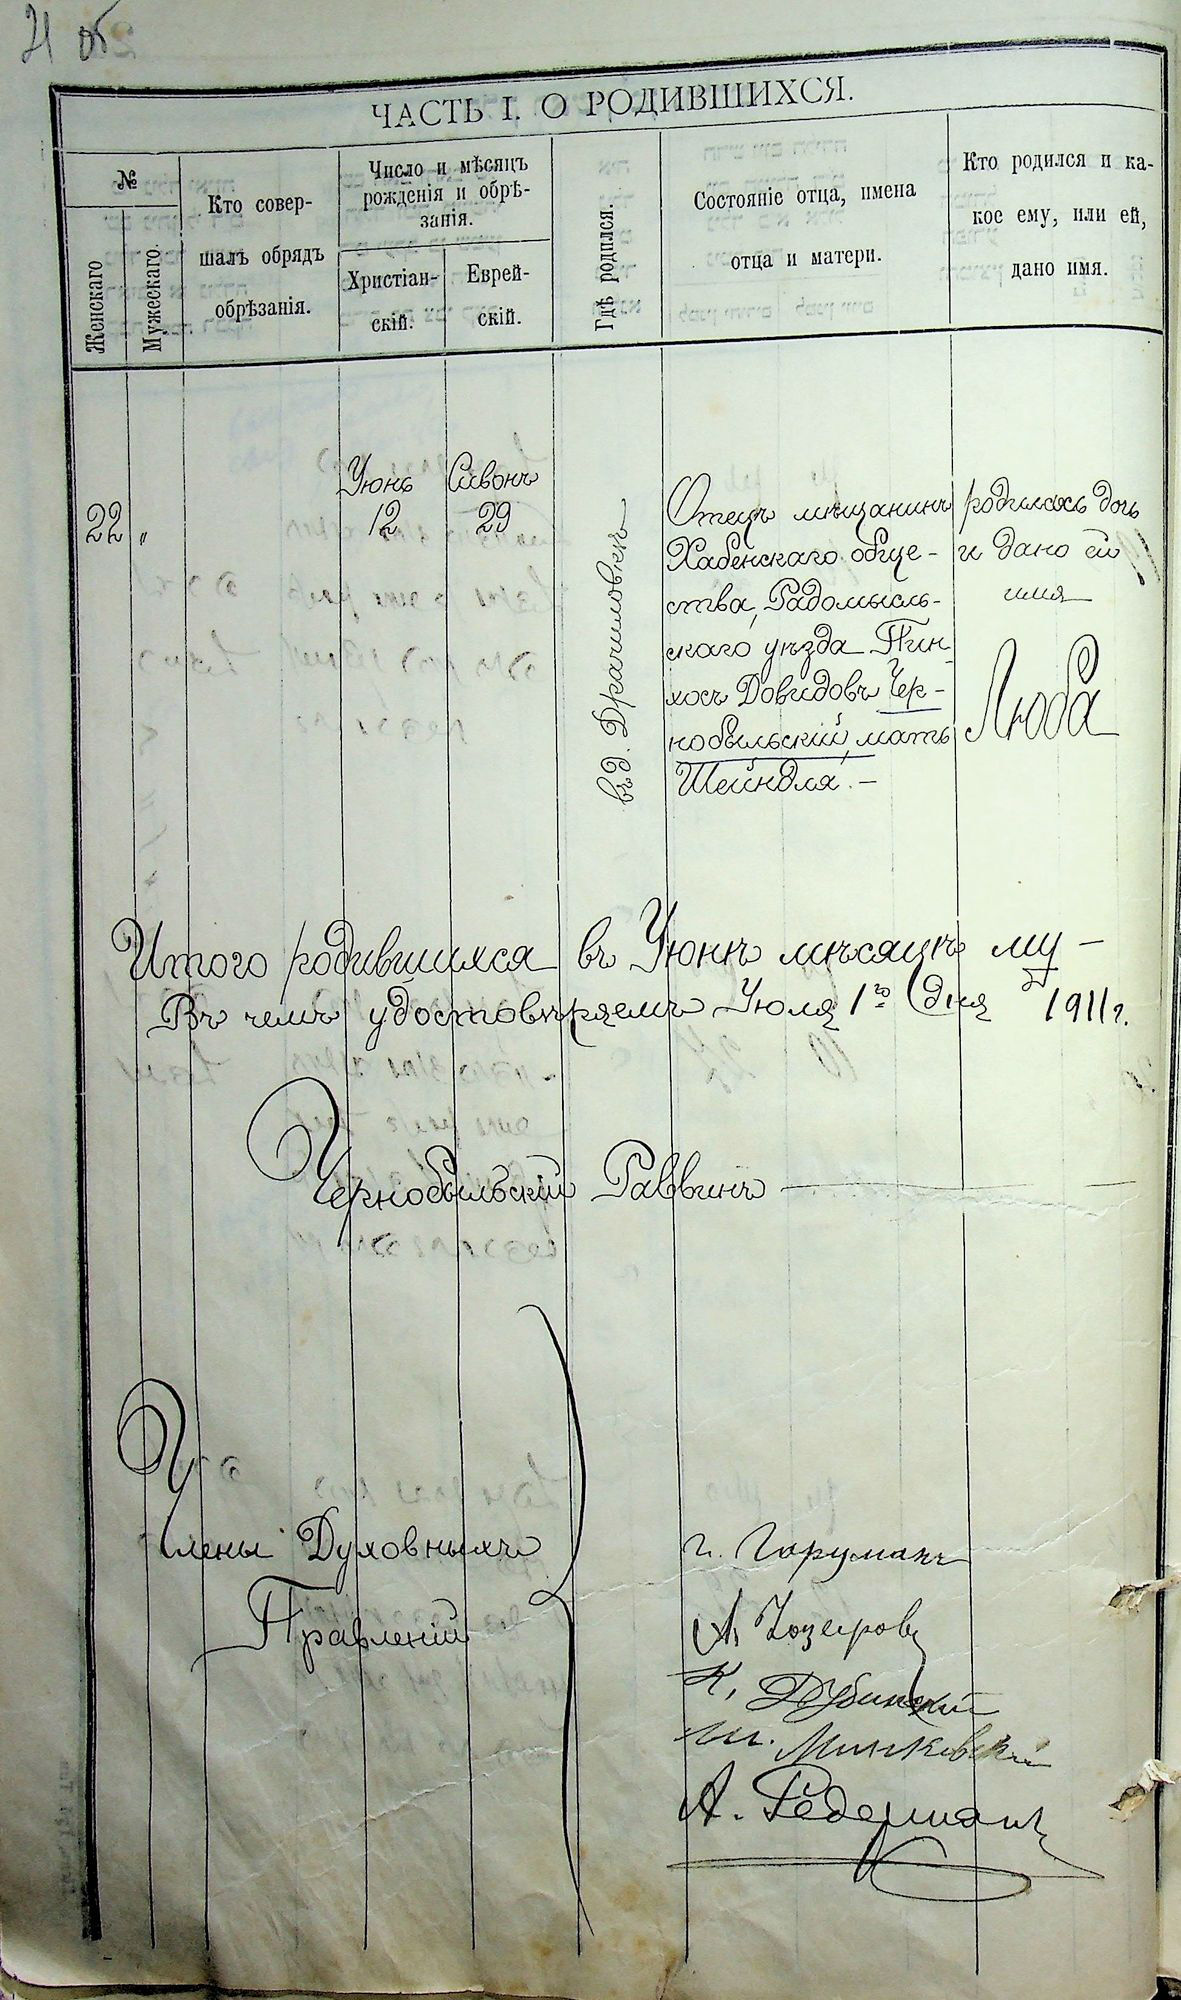 21 об
ЧАСТЬ I. О РОДИВШИХСЯ.
№
Женскаго
Мужескаго.
Кто совер-
шалъ обрядъ
обрѣзанія.
Число и мѣсяцъ
рожденія и обрѣ-
занія.
Христіан-
скій.
Еврей-
скій.
Гдѣ родился.
Состояніе отца, имена
отца и матери.
Кто родился и ка-
кое ему, или ей,
дано имя.
22 „
Іюнь
12
Сивонъ
29
въ д.
Отецъ мѣщанинъ
Хабенскаго обще-
ства, Радомысль-
скаго уѣзда Пин-
хосъ Довидовъ Чер-
нобыльскій, мать
Шейндля. —
родилась дочь
и дано ей
имя
Люба
Итого родившихся въ Іюнѣ мѣсяцѣ
Въ чемъ удостовѣряемъ Іюля 1го дня 1911 г.
Чернобыльскій Раввинъ
Члены Духовныхъ
Правленій
К. Дубинскій
А.